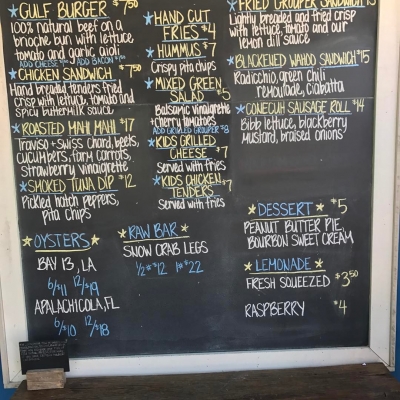 GULF BURGER $7.50
100% natural beef on a
brioche bun with lettuce,
tomato and garlic aioli
ADD CHEESE ADD BACON
CHICKEN SANDWICH $7.50
Hand breaded tenders fried
crisp with lettuce, tomato and
spicy buttermilk sauce
ROASTED MAHI MAHI $17
Traviso + swiss chard, beets,
cucumbers, farm carrots,
strawberry vinaigrette
SMOKED TUNA DIP $12
Pickled hatch peppers,
pita chips
OYSTERS
BAY 13, LA
6/$11 12/$19
APALACHICOLA, FL
6/$10 12/$18
HAND CUT
FRIES $4
HUMMUS $7
Crispy pita chips
MIXED GREEN
SALAD $5
Balsamic vinaigrette
+ cherry tomatoes
ADD GRILLED GROUPER $8
KIDS GRILLED
CHEESE $7
Served with fries
KIDS CHICKEN
TENDERS $7
Served with fries
RAW BAR
SNOW CRAB LEGS
1/2# $12 1# $22
FRIED GROUPER SANDWICH $15
Lightly breaded and fried crisp
with lettuce, tomato and our
lemon dill sauce
BLACKENED WAHOO SANDWICH $15
Radicchio, green chili
remoulade, ciabatta
CONECUH SAUSAGE ROLL $14
Bibb lettuce, blackberry
mustard, braised onions
DESSERT $5
PEANUT BUTTER PIE,
BOURBON SWEET CREAM
LEMONADE
FRESH SQUEEZED $3.50
RASPBERRY $4